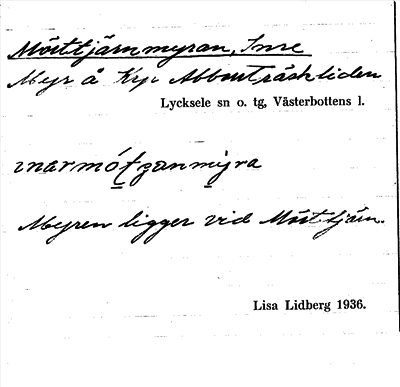 Mörttjärnmyran, Inre
Myr å Krp Abborrträskliden
Lycksele sn o. tg, Västerbottens l.
Myren ligger vid Mörttjärn.
Lisa Lidberg 1936.